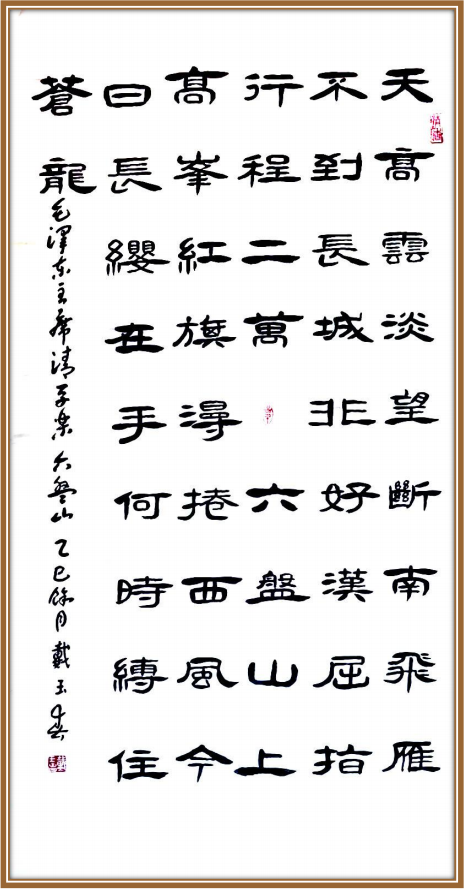 天高雲淡望斷南飛雁
不到長城非好漢屈指
行程二萬 六盤山上
高峯紅旗漫捲西風今
日長纓在手何時縛住
蒼龍
毛澤东主席清平樂六盤山 乙巳餘月 戴玉春